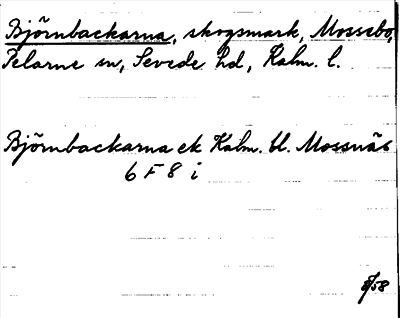 Björnbackarna, skogsmark, Mossebo,
Pelarne sn, Sevede hd, Kalm. l.
Björnbackarna ek Kalm. bl. Mossnäs
6 F 8 i
8/58